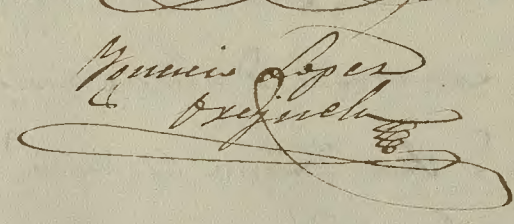 Ygnacio Lopez
Orejuela